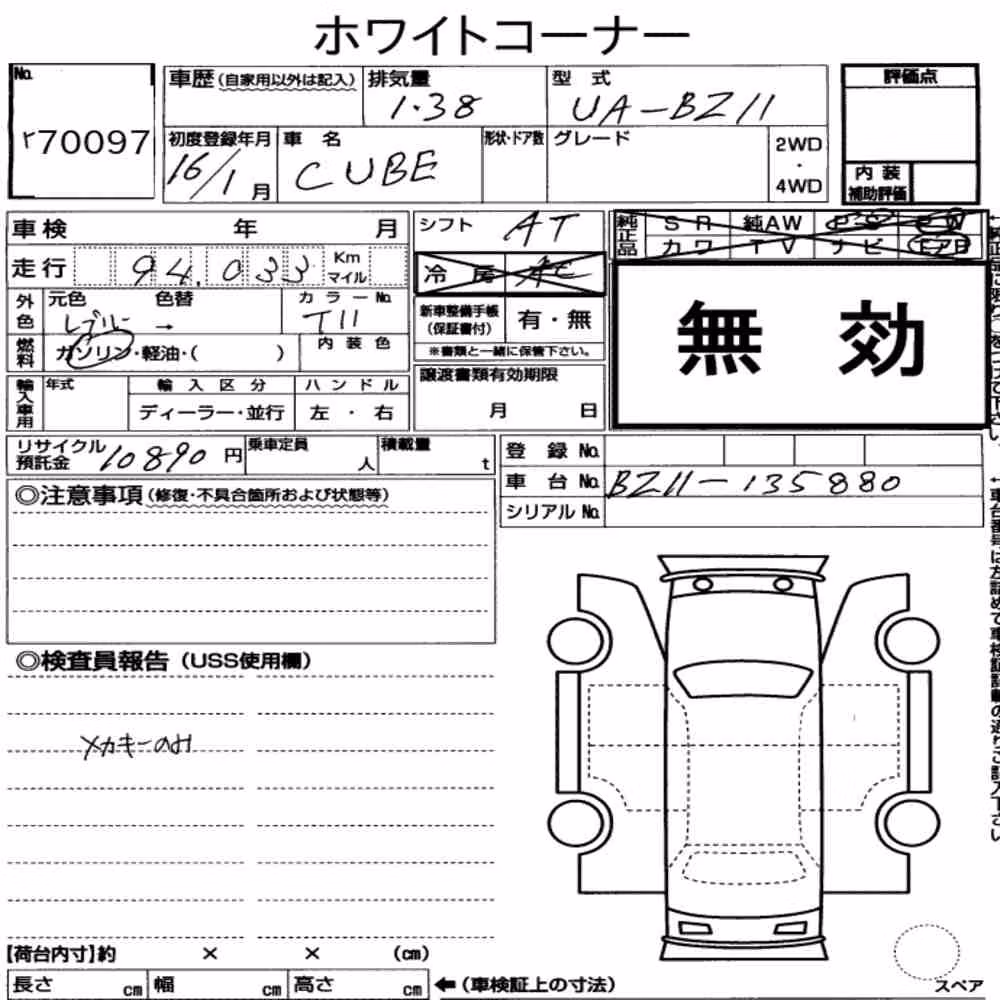 ホワイトコーナー
No. r70097
車歴(自家用以外は記入) 排気量 1.38 型式 UA-BZ11
評価点
初度登録年月 16/1月 車名 CUBE 形状・ドア数 グレード 2WD・4WD
内装補助評価
車検 年 月
シフト AT
純正品 SR 純AW PS PW
カワ TV ナビ エアB
走行 94,033 Km マイル
冷房
外色 元色 レブルー 色替 → カラーNo. T11
新車整備手帳(保証書付) 有・無
無効
燃料 ガソリン・軽油・( ) 内装色
※書類と一緒に保管下さい。
輸入車用 年式 輸入区分 ハンドル
ディーラー・並行 左・右
譲渡書類有効期限
月 日
リサイクル預託金 10890円 乗車定員 人 積載量 t
登録No.
車台No. BZ11-135880
シリアルNo.
◎注意事項(修復・不具合箇所および状態等)
◎検査員報告(USS使用欄)
メカキーのみ
【荷台内寸】約 × × (cm)
長さ cm 幅 cm 高さ cm ←(車検証上の寸法)
スペア